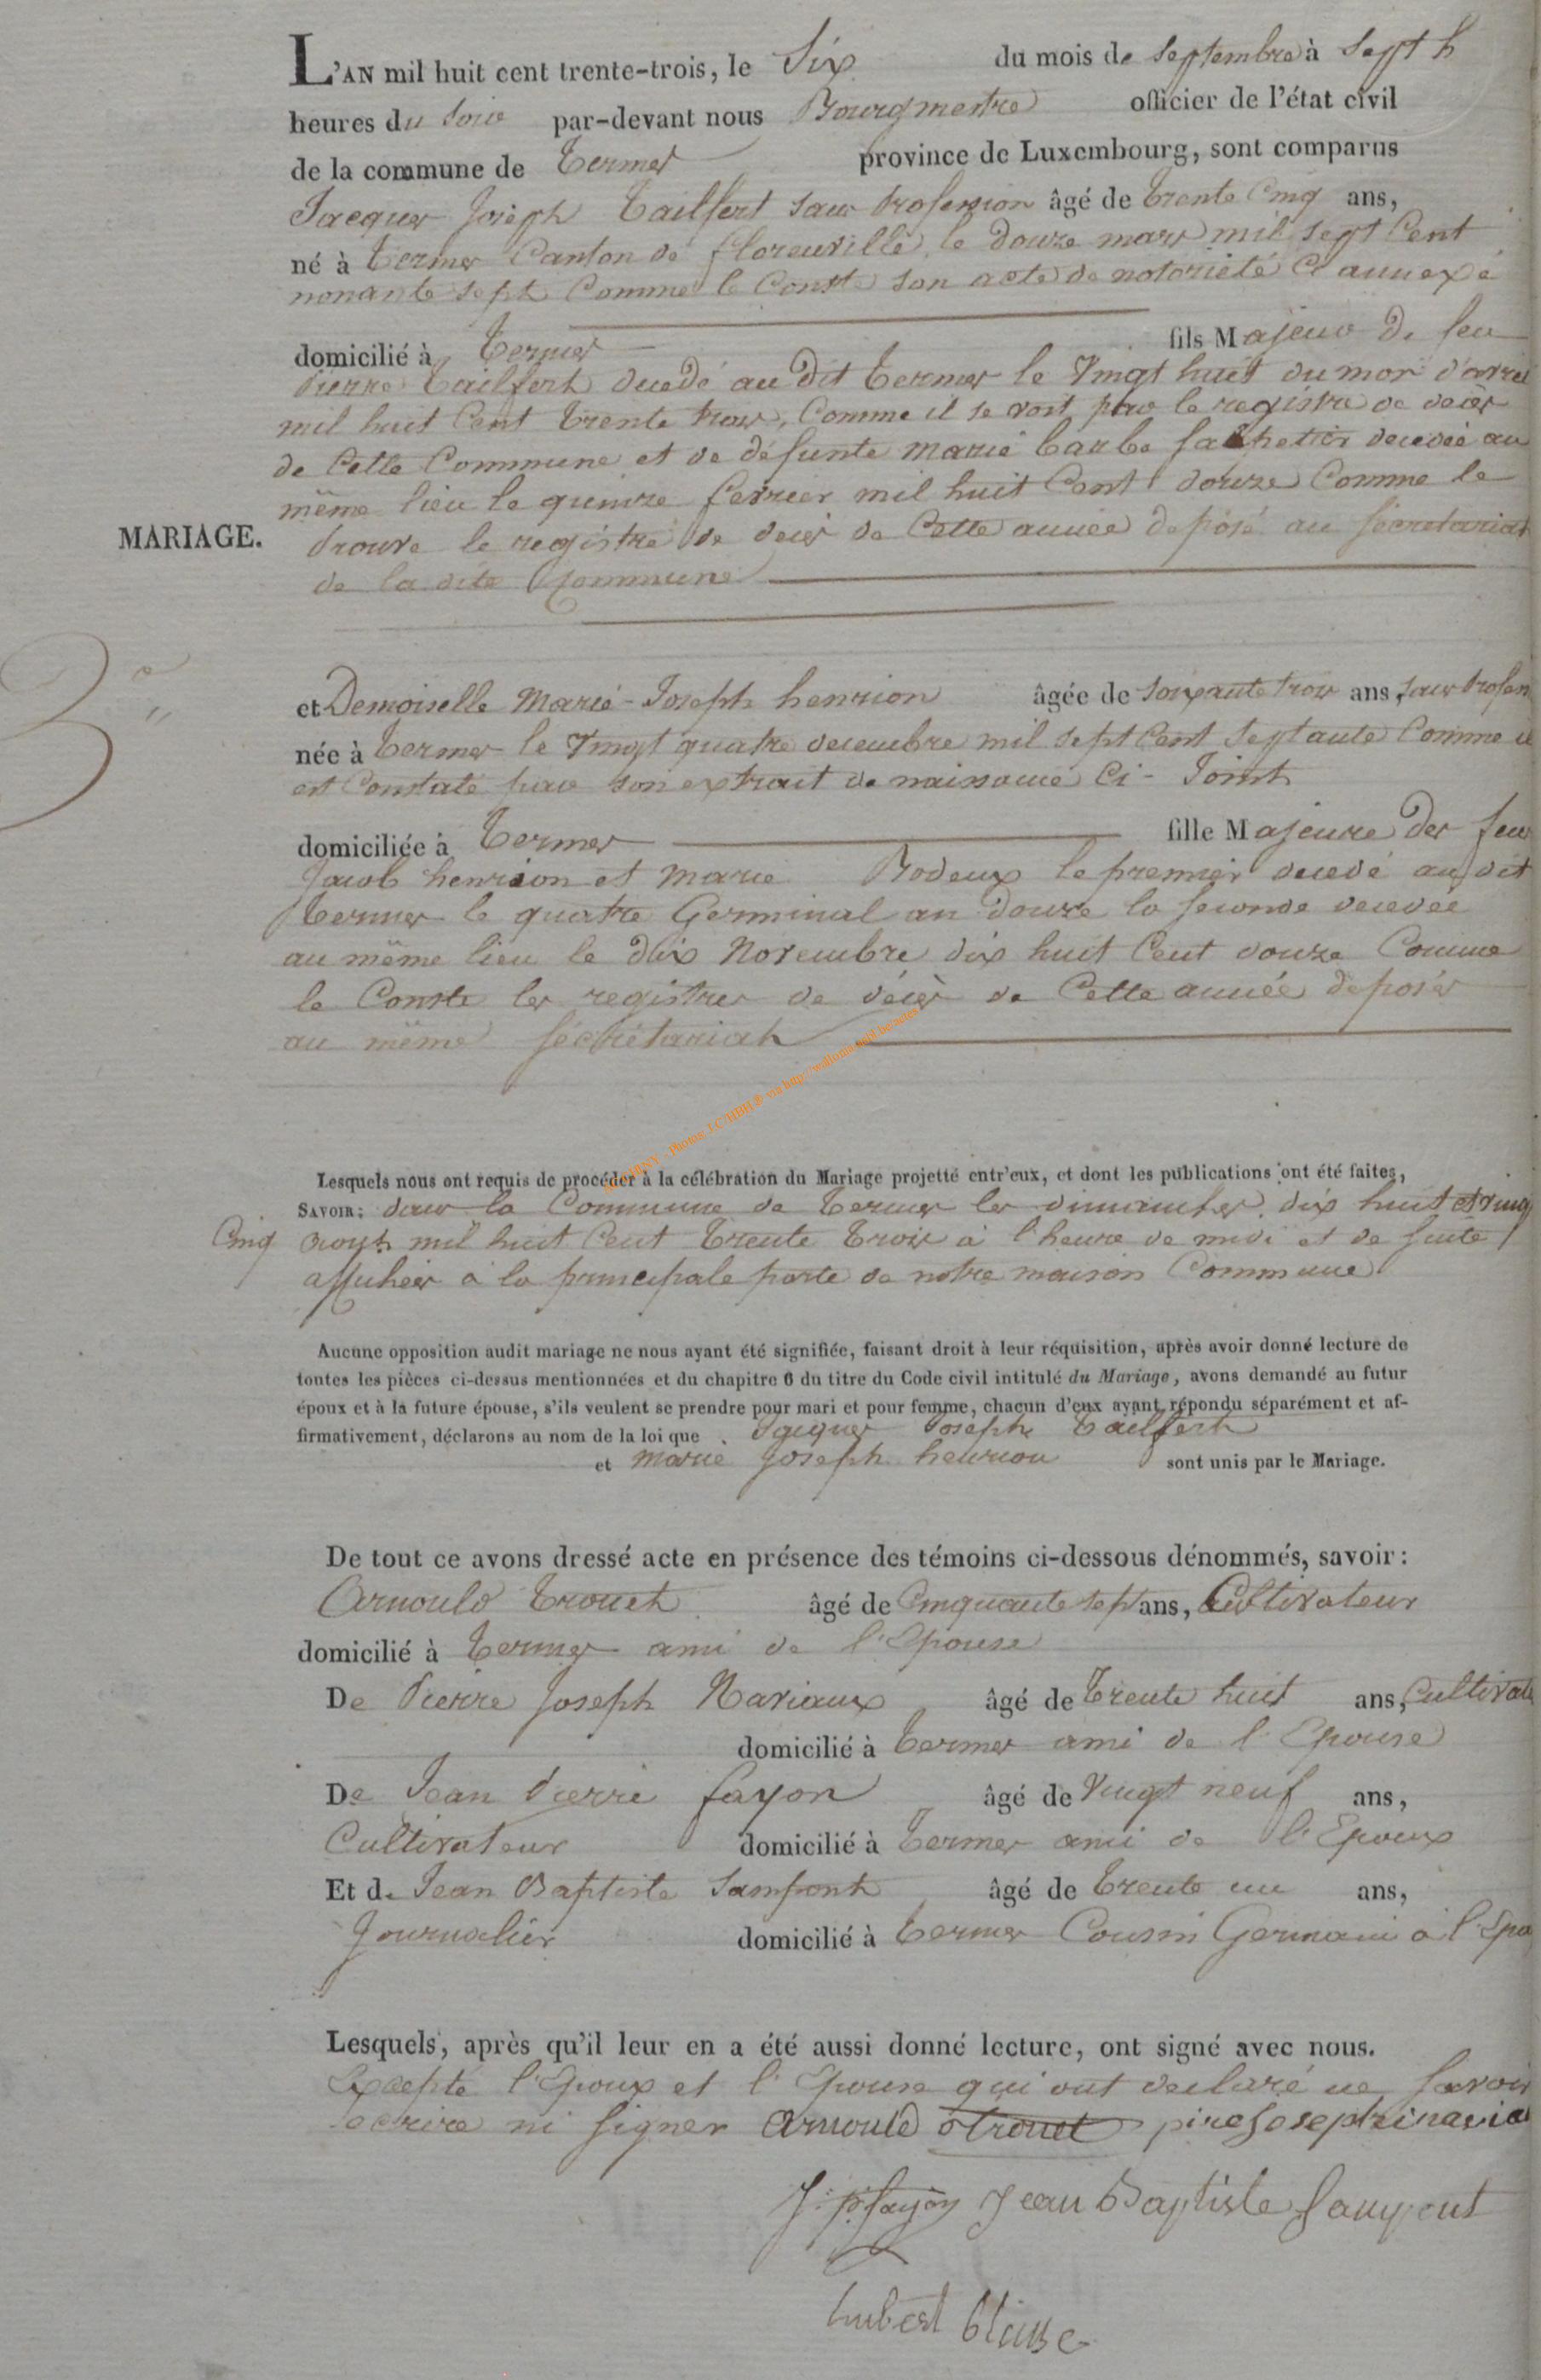 L'AN mil huit cent trente-trois, le Six du mois de Septembre à Sept h
heures du Soir par-devant nous Bourgmestre officier de l'état civil
de la commune de Termes province de Luxembourg, sont comparus
Jacques Joseph Tailfert sans profession âgé de trente Cinq ans,
né à Termes Canton de florenville, le douze mars mil sept Cent
nonante sept Comme le Conste son acte de notorieté Ci annexé
domicilié à Termes fils Majeur de feu
Pierre Tailfert decedé au dit Termes le Vingt huit du mois d'avril
mil huit Cent trente trois, Comme il se voit par le registre de décès
de Cette Commune et de défunte marie barbe decedée au
même lieu le quinze fevrier mil huit Cent douze Comme le
MARIAGE.
prouve le registre de décès de Cette année déposé au sécretariat
de la dite Commune
3e
et Demoiselle Marie-Joseph henrion âgée de soixante trois ans, sans profession
née à Termes le Vingt quatre decembre mil sept Cent Septante Comme il
est Constaté par son extrait de naissance Ci-Joint
domiciliée à Termes fille Majeure des feu
Jacob henrion et marie Rodeux le premier decedé au dit
Termes le quatre Germinal an douze la seconde decedée
au même lieu le dix Novembre dix huit Cent douze Comme
le Conste les registres de décès de Cette année déposés
au même sécrétariat
Lesquels nous ont requis de procéder à la célébration du Mariage projetté entr'eux, et dont les publications ont été faites,
SAVOIR: dans la Commune de Termes les dimanches dix huit et vingt
Cinq aout mil huit Cent trente trois à l'heure de midi et de suite
affichées à la principale porte de notre maison Commune
Aucune opposition audit mariage ne nous ayant été signifiée, faisant droit à leur réquisition, après avoir donné lecture de
toutes les pièces ci-dessus mentionnées et du chapitre 6 du titre du Code civil intitulé du Mariage, avons demandé au futur
époux et à la future épouse, s'ils veulent se prendre pour mari et pour femme, chacun d'eux ayant répondu séparément et af-
firmativement, déclarons au nom de la loi que Jacques Joseph Tailfert
et marie Joseph henrion sont unis par le Mariage.
De tout ce avons dressé acte en présence des témoins ci-dessous dénommés, savoir:
Arnould Trouet âgé de Cinquante sept ans, Cultivateur
domicilié à Termes ami de l'Epouse
De Pierre Joseph Naviaux âgé de trente huit ans, Cultivate
domicilié à Termes ami de l'Epouse
De Jean Pierre fayon âgé de Vingt neuf ans,
Cultivateur domicilié à Termes ami de l'Epoux
Et de Jean Baptiste Sampont âgé de trente un ans,
Journalier domicilié à Termes Cousin Germain à l'Epo
Lesquels, après qu'il leur en a été aussi donné lecture, ont signé avec nous.
Excepté l'Epoux et l'Epouse qui ont declaré ne savoir
écrire ni signer Arnould trouet
J: p: fayon Jean Baptiste Sampont
hubert blaise